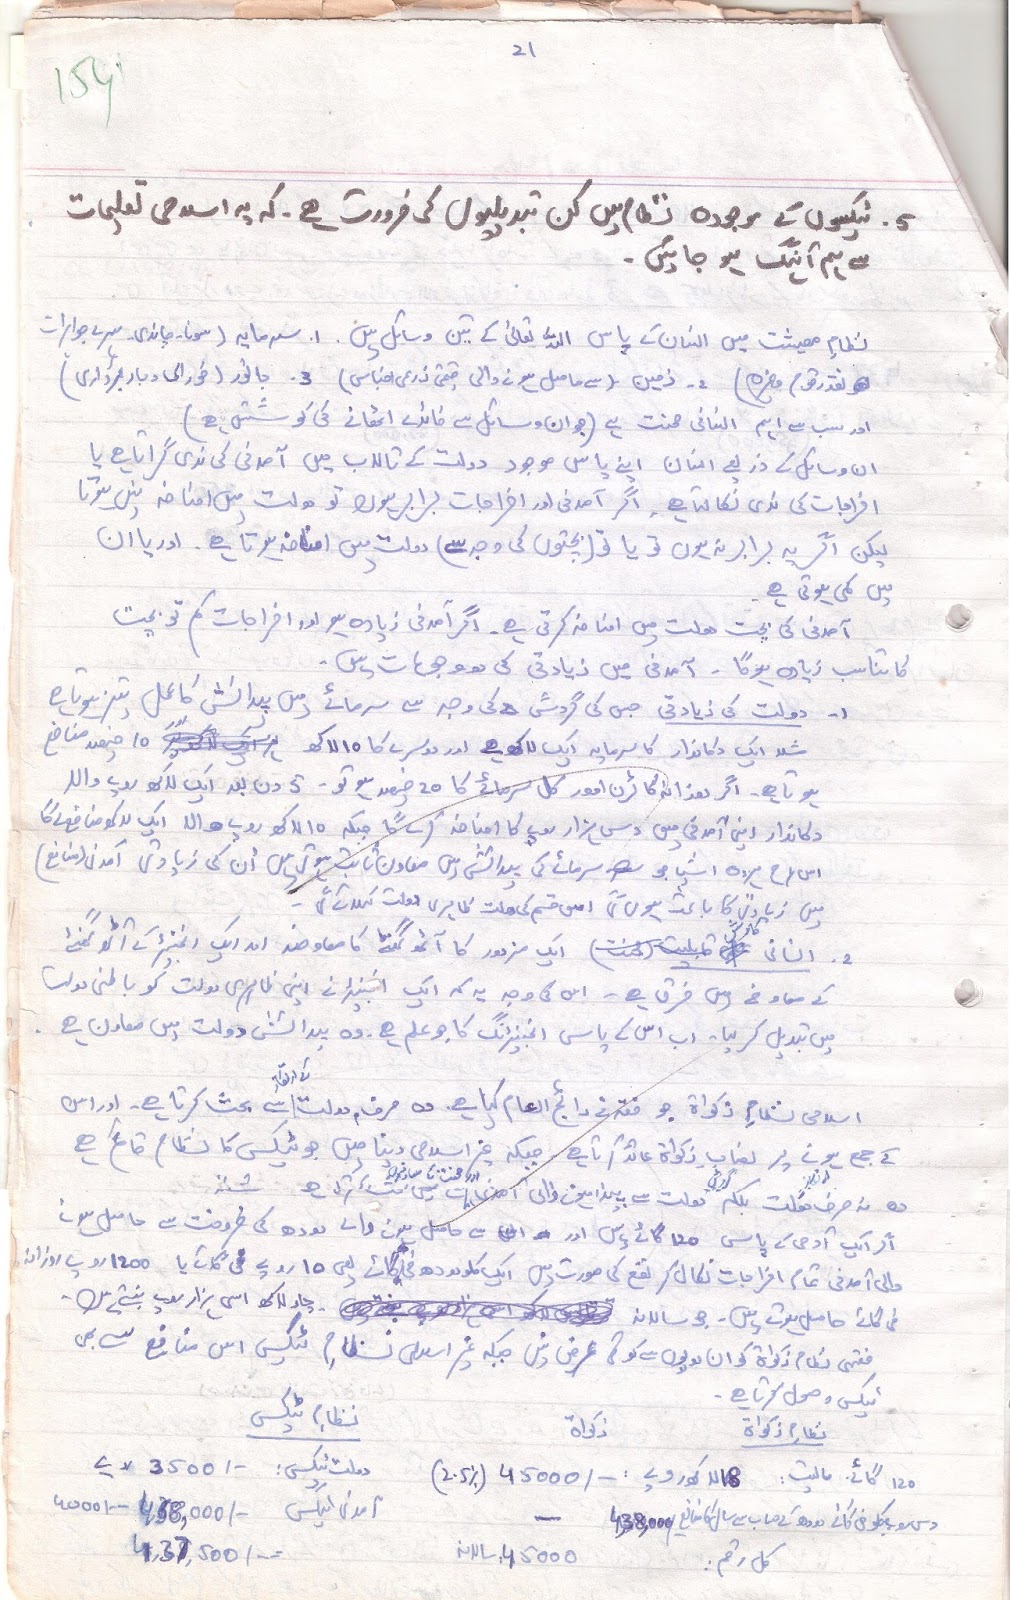 21
154
5. ٹیکسوں کے موجودہ نظام میں کن تبدیلیوں کی ضرورت ہے۔ کہ یہ اسلامی تعلیمات
سے ہم آہنگ ہو جائیں۔
نظامِ معیشت میں انسان کے پاس اللہ تعالیٰ کے تین وسائل ہیں۔ 1۔ سرمایہ (سونا۔ چاندی۔ ہیرے جواہرات
نقد رقوم وغیرہ) 2۔ زمین (سے حاصل ہونے والی جتنی زرعی اجناس) 3۔ جانور (
اور سب سے اہم انسانی محنت ہے (جو ان وسائل سے فائدے اٹھانے کی کوشش ہے)
ان وسائل کے ذریعے انسان اپنے پاس موجود دولت کے تالاب میں آمدنی کی ندی گراتا ہے یا
اخراجات کی ندی نکالتا ہے۔ اگر آمدنی اور اخراجات برابر ہوں تو دولت میں اضافہ نہیں ہوتا
لیکن اگر یہ برابر نہ ہوں تو یا تو (بچتوں کی وجہ سے) دولت میں اضافہ ہوتا ہے۔ اور یا ان
میں کمی ہوتی ہے۔
آمدنی کی بچت دولت میں اضافہ کرتی ہے۔ اگر آمدنی زیادہ ہو اور اخراجات کم تو بچت
کا تناسب زیادہ ہوگا۔ آمدنی میں زیادتی کی دو وجوہات ہیں۔
1۔ دولت کی زیادتی جس کی گردش کی وجہ سے سرمائے میں پیدائش کا عمل تیز ہوتا ہے
مثلاً ایک دکاندار کا سرمایہ ایک لاکھ ہے اور دوسرے کا 10 لاکھ 10 فیصد منافع
ہوتا ہے۔ اگر روزانہ کا ٹرن اوور کل سرمائے کا 20 فیصد ہو تو۔ 5 دن بعد ایک لاکھ روپے والا
دکاندار اپنی آمدنی میں دس ہزار روپے کا اضافہ کرے گا جبکہ 10 لاکھ روپے والا ایک لاکھ منافع لے گا
اس طرح ہر وہ اشیا جو سرمائے کی پیدائش میں معاون ثابت ہوتی ہیں ان کی زیادتی آمدنی (منافع)
میں زیادتی کا باعث ہوں گی اس قسم کی دولت ظاہری دولت کہلائے گی۔
2۔ انسانی کارکردگی (محنت) ایک مزدور کا آٹھ گھنٹے کا معاوضہ اور ایک انجینئر کے آٹھ گھنٹے
کے معاوضے میں فرق ہے۔ اس کی وجہ یہ کہ ایک انجینئر نے اپنی ظاہری دولت کو باطنی دولت
میں تبدیل کر لیا۔ اب اس کے پاس انجینئرنگ کا جو علم ہے۔ وہ پیدائشِ دولت میں معاون ہے۔
اسلامی نظامِ زکواة جو فقہ نے رائج العام کیا ہے۔ وہ صرف دولت کے ارتکاز سے بحث کرتا ہے۔ اور اس
کے جمع ہونے پر نصابِ زکواة عائد کرتا ہے۔ جبکہ غیر اسلامی دنیا میں جو ٹیکس کا نظام قائم ہے
وہ نہ صرف ارتکازِ دولت بلکہ گردشِ دولت سے پیدا ہونے والی آمدنی مثلاً
اگر ایک آدمی کے پاس 120 گائے ہیں اور ان سے حاصل ہونے والے دودھ کی فروخت سے حاصل ہونے
والی آمدنی تمام اخراجات نکال کر نفع کی صورت میں ایک کلو دودھ فی گائے یعنی 10 روپے فی گائے یا 1200 روپے روزانہ
فی گائے حاصل ہوتے ہیں۔ جو سالانہ چار لاکھ اسی ہزار روپے بنتے ہیں۔
فقہی نظامِ زکواة کو ان روپوں سے کوئی غرض نہیں جبکہ غیر اسلامی نظامِ ٹیکس اس منافع سے بھی
ٹیکس وصول کرتا ہے۔
نظامِ زکواة زکواة نظامِ ٹیکس
120 گائے۔ مالیت: 18 لاکھ روپے: 45000/- (2.5%) دولت ٹیکس: 3500/- روپے
دس روپے کلو فی گائے دودھ کے حساب سے سال کا منافع 438,000/ — آمدنی ٹیکس 438,000/- 40001-
کل رقم: 45000 سالانہ 437,500/-